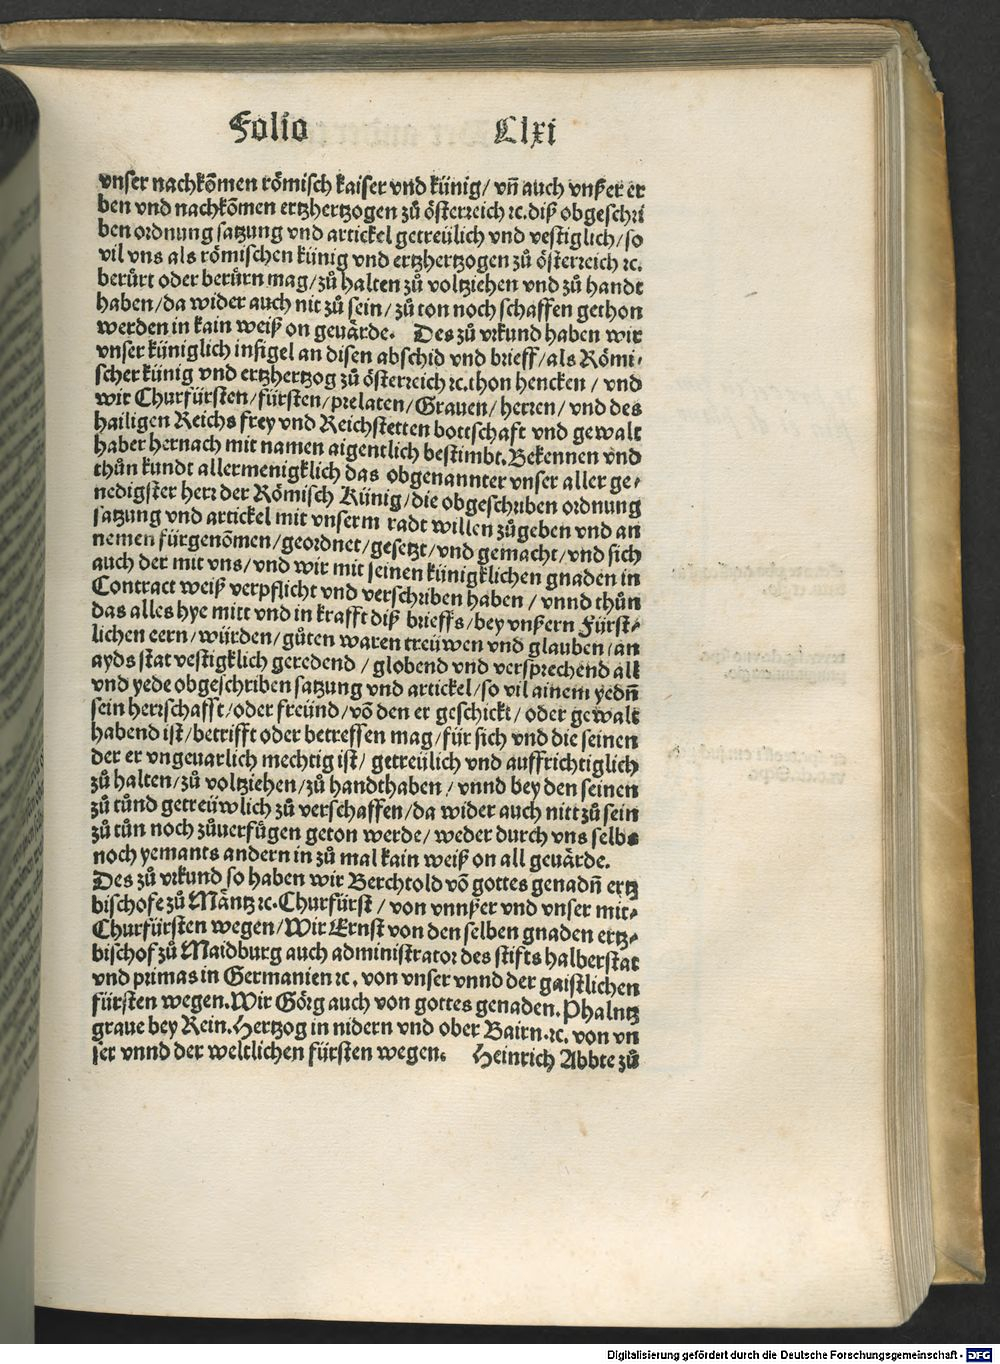 Folio Clxi
vnser nachkõmen römisch kaiser vnd künig/ vñ auch vnßer er
ben vnd nachkõmen ertzhertzogen zů österreich ꝛc. diß obgeschri
ben ordnung satzung vnd artickel getreülich vnd vestiglich/ so
vil vns als römischen künig vnd ertzhertzogen zů österreich ꝛc.
berůrt oder berůrn mag/ zů halten zů voltziehen vnd zů handt
haben/ da wider auch nit zů sein/ zů ton noch schaffen gethon
werden in kain weiß on geuärde. Des zů vrkund haben wir
vnser küniglich insigel an disen abschid vnd brieff/ als Römi⸗
scher künig vnd ertzhertzog zů österreich ꝛc. thon hencken / vnd
wir Churfürsten/ fürsten/ prelaten/ Grauen/ herren/ vnd des
hailigen Reichs frey vnd Reichstetten bottschafft vnd gewalt
haber hernach mit namen aigentlich bestimbt. Bekennen vnd
thůn kundt allermenigklich das obgenannter vnser aller ge⸗
nedigster herr der Römisch Künig/ die obgeschriben ordnung
satzung vnd artickel mit vnserm radt willen zůgeben vnd an
nemen fürgenõmen/ geordnet/ gesetzt/ vnd gemacht/ vnd sich
auch der mit vns/ vnd wir mit seinen künigklichen gnaden in
Contract weiß verpflicht vnd verschriben haben / vnnd thůn
das alles hye mitt vnd in krafft diß brieffs/ bey vnßern Fürst⸗
lichen eern/ würden/ gůten waren treüwen vnd glauben/ an
ayds stat vestigklich geredend / globend vnd versprechend all
vnd yede obgeschriben satzung vnd artickel/ so vil ainem yedñ
sein herrschafft/ oder freünd/ võ den er geschickt/ oder gewalt
habend ist/ betrifft oder betreffen mag/ für sich vnd die seinen
der er vngeuarlich mechtig ist/ getreülich vnd auffrichtiglich
zů halten/ zů voltziehen/ zů handthaben / vnnd bey den seinen
zů tůnd getreüwlich zů verschaffen/ da wider auch nitt zů sein
zů tůn noch zůuerfůgen geton werde/ weder durch vns selbs
noch yemants andern in zů mal kain weiß on all geuärde.
Des zů vrkund so haben wir Berchtold võ gottes genadñ ertz
bischofe zů Mäntz ꝛc. Churfürst / von vnnßer vnd vnser mit⸗
Churfürsten wegen/ Wir Ernst von den selben gnaden ertz⸗
bischof zů Maidburg auch administrator des stifts halberstat
vnd primas in Germanien ꝛc. von vnser vnnd der gaistlichen
fürsten wegen. Wir Görg auch von gottes genaden. Phalntz
graue bey Rein. Hertzog in nidern vnd ober Bairn. ꝛc. von vn
ser vnnd der weltlichen fürsten wegen. Heinrich Abbte zů
Digitalisierung gefördert durch die Deutsche Forschungsgemeinschaft - DFG